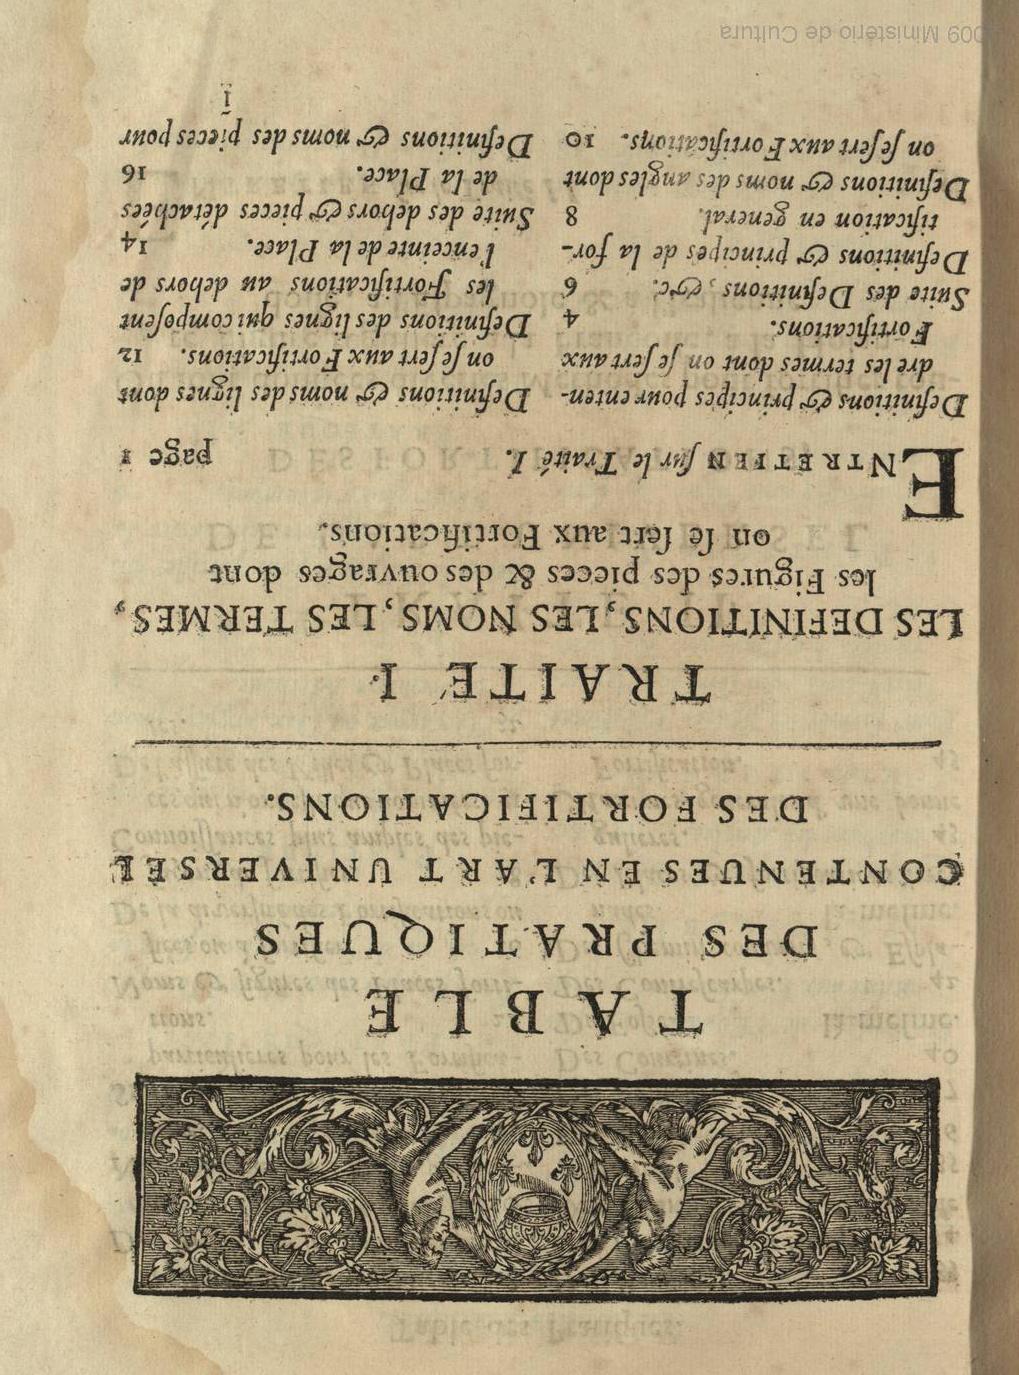 TABLE
DES PRATIQUES
CONTENUES EN L'ART UNIVERSEL
DES FORTIFICATIONS.
TRAITE' I.
LES DEFINITIONS, LES NOMS, LES TERMES,
les Figures des pieces & des ouvrages dont
on se sert aux Fortifications.
ENTRETIEN sur le Traité I. page 1
Definitions & principes pour enten-
dre les termes dont on se sert aux
Fortifications. 4
Suite des Definitions, &c. 6
Definitions & principes de la for-
tification en general. 8
Definitions & noms des angles dont
on se sert aux Fortifications. 10
Definitions & noms des lignes dont
on se sert aux Fortifications. 12
Definitions des lignes qui composent
les Fortifications au dehors de
l'enceinte de la Place. 14
Suite des dehors & pieces détachées
de la Place. 16
Definitions & noms des pieces pour
ī
Ministério de Cultura